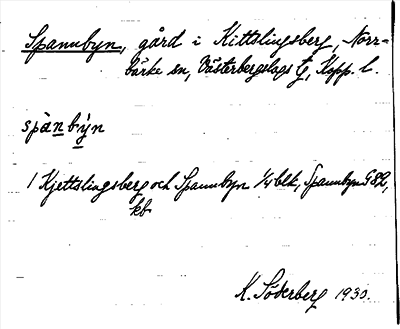 Spannbyn, gård i Kittslingsberg, Norr-
bärke sn, Västerbergslags tg, Kopp. l.
spànby̖n
1 Kjettslingsberg och Spannbyn 1/4 blk, Spannbyn G82,
kb
K. Söderberg 1930.